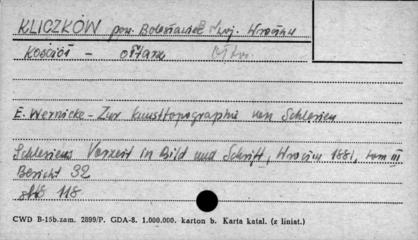 KLICZKÓW pow. Bolesławiec woj. Wrocław
Kościół - ołtarz
E. Wernicke - Zur Kunsttopographie von Schlesien
Schlesiens Vorzeit in Bild und Schrift, Wrocław 1881, tom III
Bericht 32
str 118
CWD B-15b.zam. 2899/P. GDA-8. 1.000.000. karton b. Karta katal. (z liniat.)